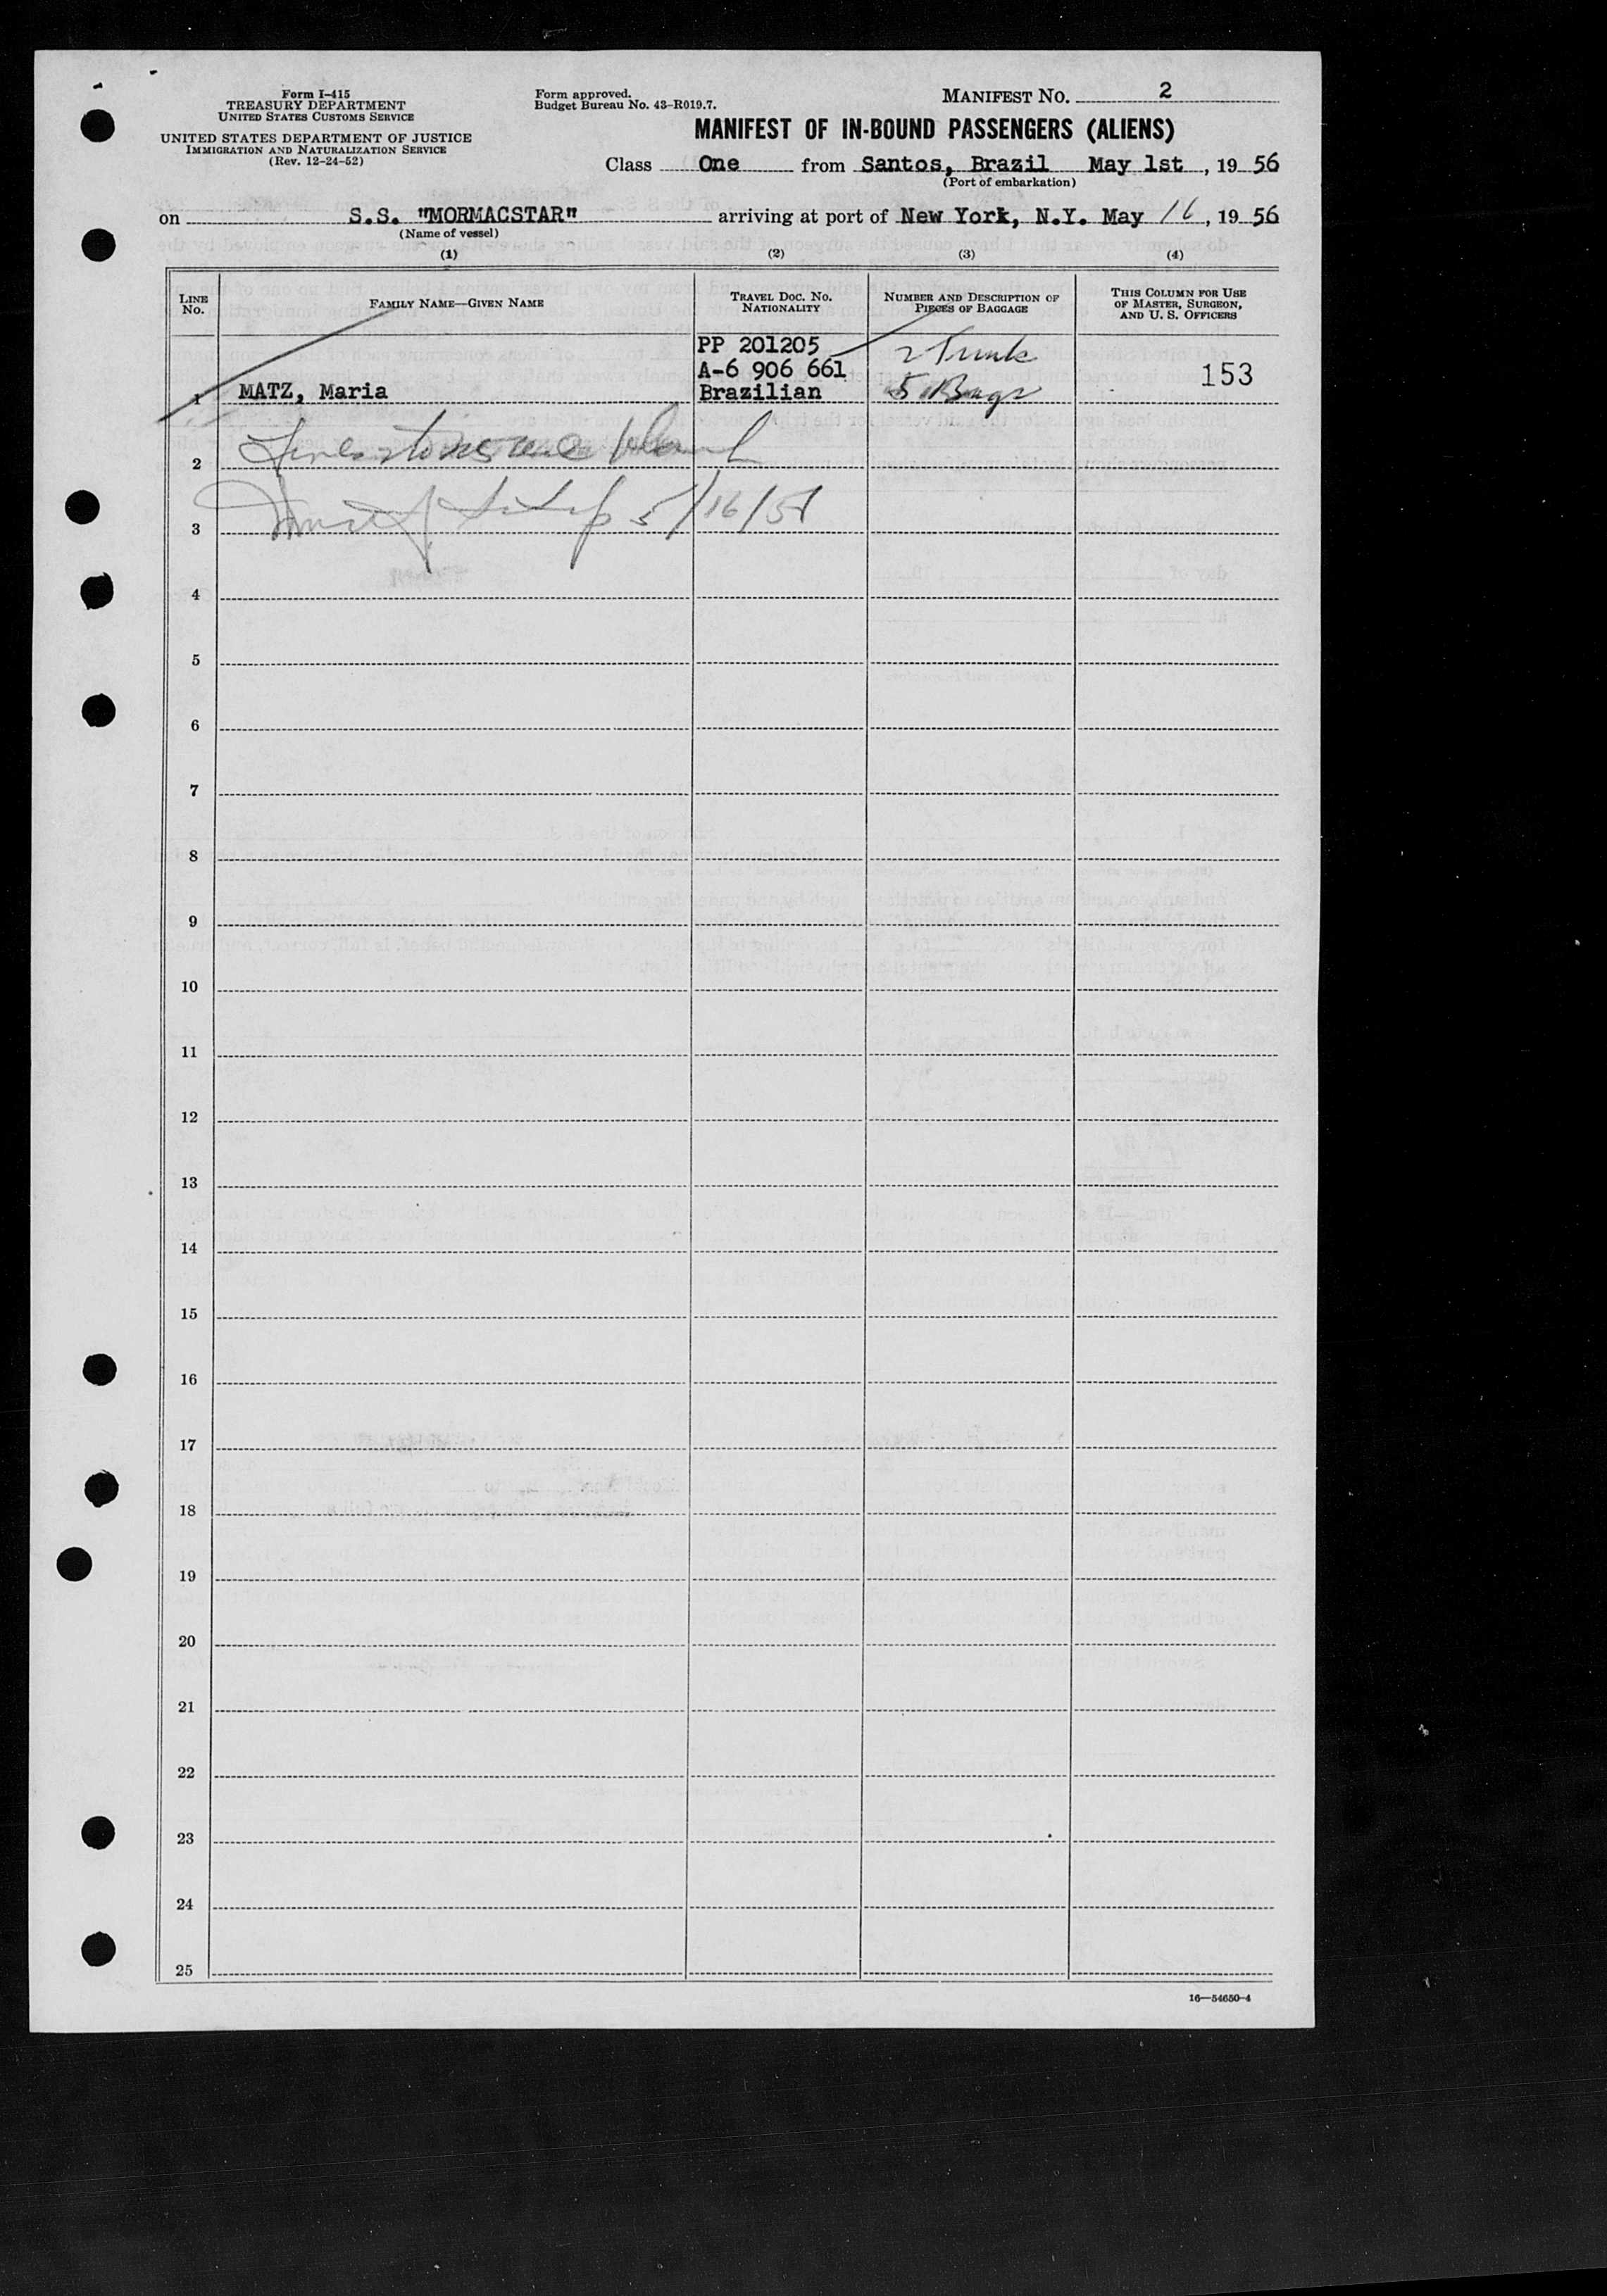 Form I-415
TREASURY DEPARTMENT
UNITED STATES CUSTOMS SERVICE
UNITED STATES DEPARTMENT OF JUSTICE
IMMIGRATION AND NATURALIZATION SERVICE
(Rev. 12-24-52)
Form approved.
Budget Bureau No. 43-R019.7.
MANIFEST NO. 2
MANIFEST OF IN-BOUND PASSENGERS (ALIENS)
Class One from Santos, Brazil May 1st, 19 56
(Port of embarkation)
on S.S. "MORMACSTAR" arriving at port of New York, N.Y. May 16, 19 56
(Name of vessel)
(1) (2) (3) (4)
LINE NO.
FAMILY NAME—GIVEN NAME
TRAVEL DOC. NO. NATIONALITY
NUMBER AND DESCRIPTION OF PIECES OF BAGGAGE
THIS COLUMN FOR USE OF MASTER, SURGEON, AND U. S. OFFICERS
PP 201205 2 Trunk
A-6 906 661 153
1 MATZ, Maria Brazilian 5 Bags
2
3 5/16/56
4
5
6
7
8
9
10
11
12
13
14
15
16
17
18
19
20
21
22
23
24
25
16—54650-4